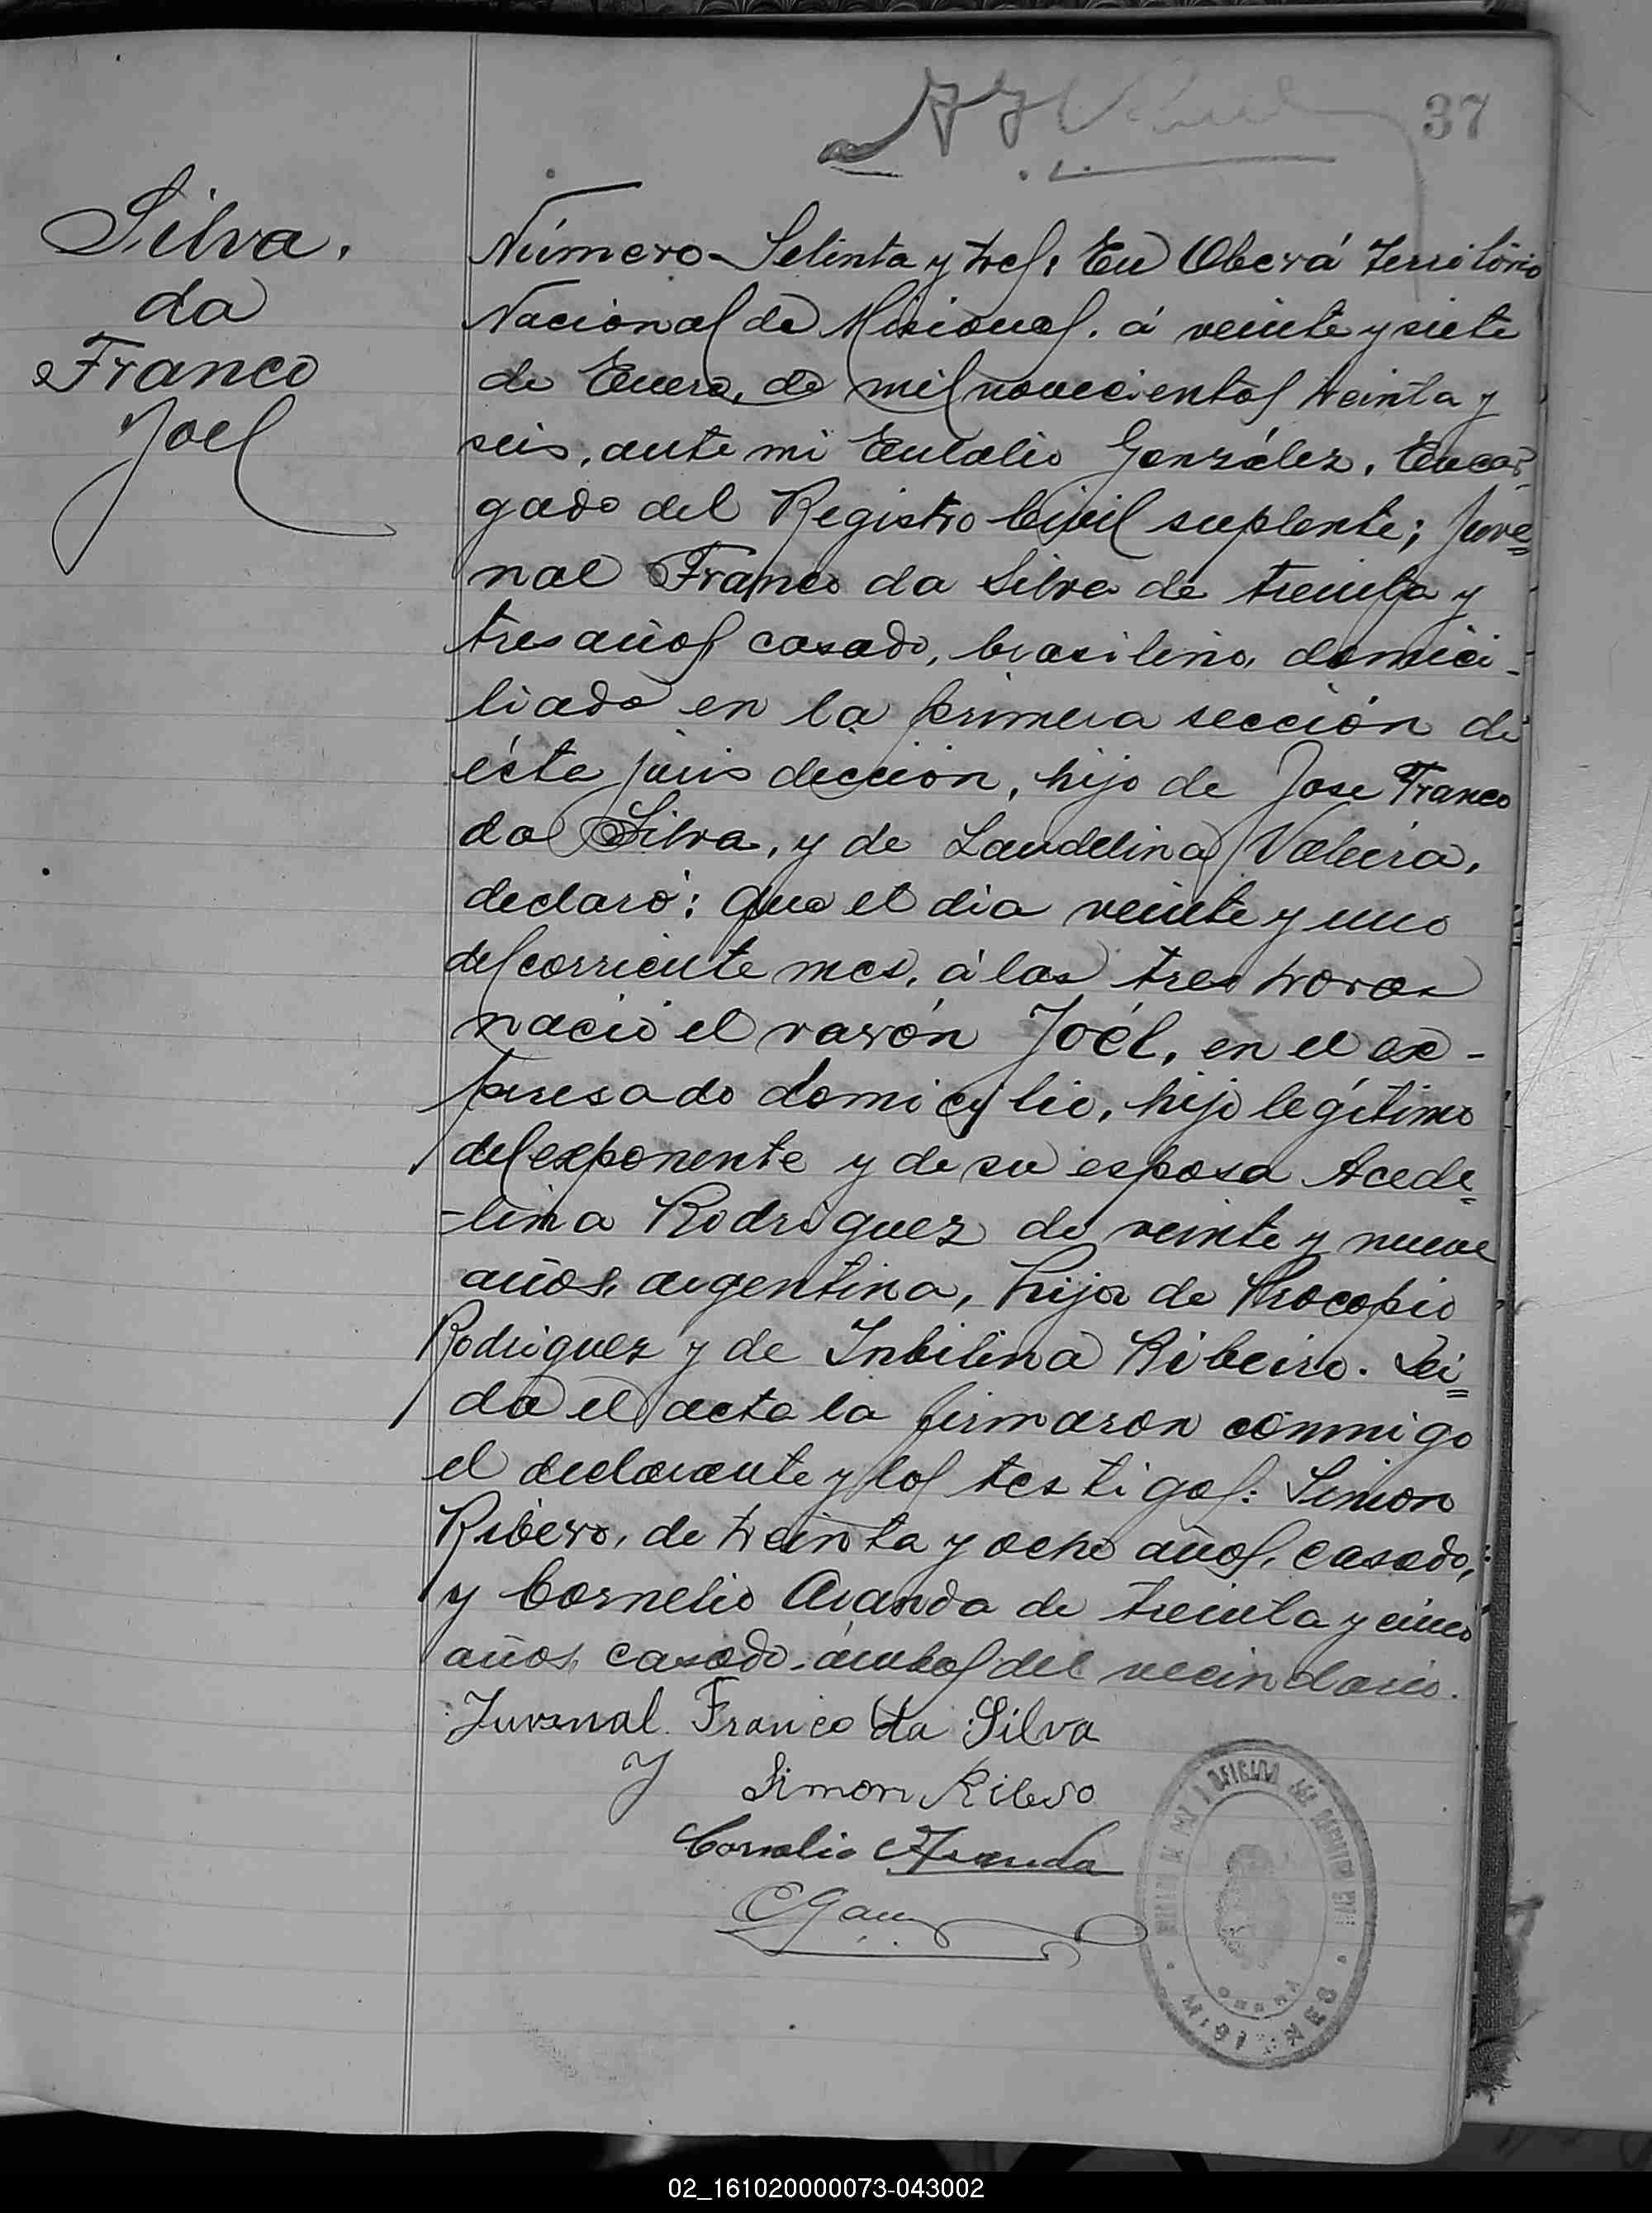 37
Silva,
da
Franco
Joel
Número Setinta y tres: En Oberá Territorio
Nacional de Misiones, á veinte y siete
de Enero, de mil novecientos treinta y
seis, ante mi Eulalio González, Encar-
gado del Registro Civil suplente; Juve=
nal Franco da Silva de treinta y
tres años casado, brasilino, domici-
liado en la primera sección de
ésta jurisdicción, hijo de Jose Franco
da Silva, y de Laudelina
declaró: Que el dia veinte y uno
del corriente mes, á las tres horas
nació el varón Joél, en el ex-
presado domicilio, hijo legítimo
del exponente y de su esposa Acede=
-lina Rodriguez de veinte y nueve
años, argentina, hija de Procopio
Rodriguez y de Inbilina Ribeiro. Lei=
da el acta la firmaron conmigo
el declarante y los testigos: Simon
Ribero, de treinta y ocho años, casado,
y Cornelio Aranda de treinta y cinco
años, casado, ámbos del vecindario.
Juvenal Franco da Silva
Simon Ribero
Cornelio Aranda
MISIONES
02_161020000073-043002